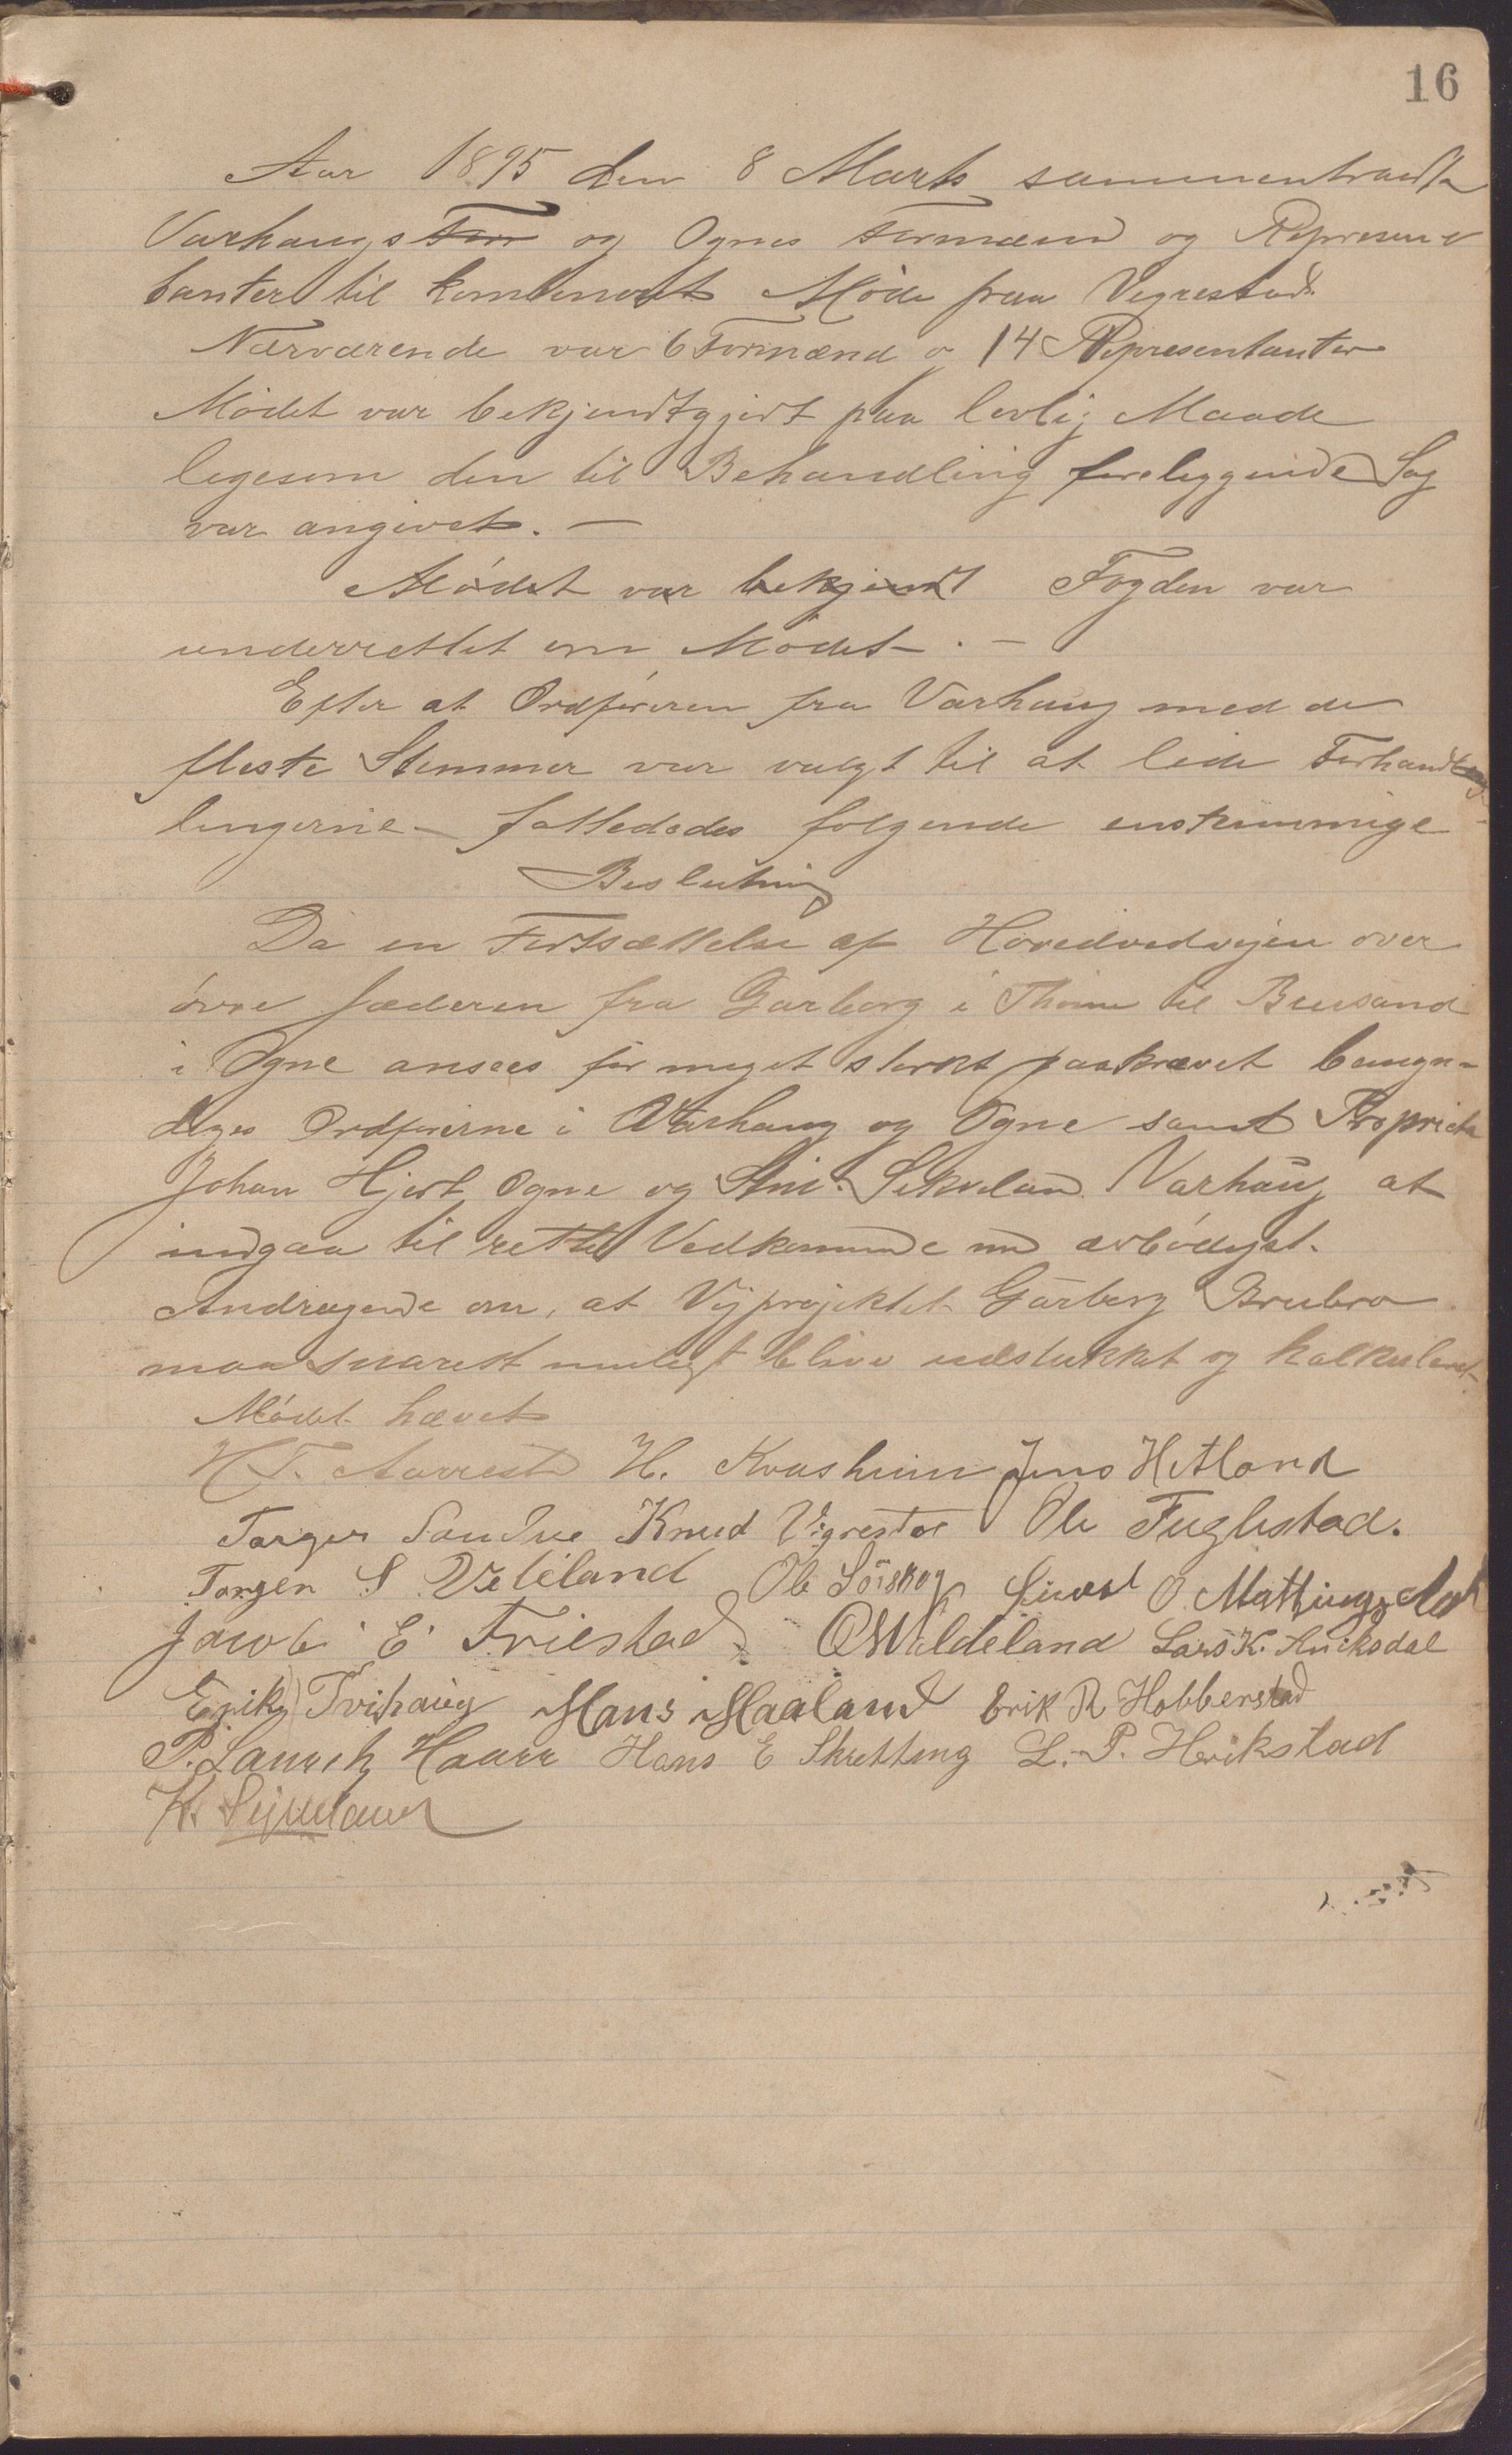 16
Aar 1895 den 8 Marts sammentraadte
Varhaugs For og Ognes Formænd og Represen-
tanter til kombineret Møde paa Vigrestad.
Nærværende var 6 Formænd og 14 Representanter
Mødet var bekjendtgjort paa lovlig Maade
ligesom den til Behandling foreliggende Sag
var angivet. —
Mødet var bekjendt Fogden var
underrettet om Mødet. —
Efter at Ordføreren fra Varhaug med de
fleste Stemmer var valgt til at lede Forhand
lingerne fattededes følgende enstemmige
Beslutning
Da en Fortsættelse af Hovedvedvejen over
øvre Jæderen fra Garborg i Thime til Brusand
i Ogne ansees for meget sterkt paakrævet bemyn-
diges Ordførerne i Varhaug og Ogne samt Proprietæ
Johan Hjort Ogne og Sekveland Varhaug at
indgaa til rette Vedkommende med ærbødigst
Andragende om, at Vejprojektet Garborg Brubro
maa snarest muligt blive udstukket og kalkuleret
Mødet hævet
H T. Aarrestad H. Kvasheim Jens Hetland
Torger Sandve Knud Vigrestad Ole Fuglestad.
Torger S Veteland Ole Söiskog Sivert O. Mattingsdal
Jacob E Friestad O M Aldeland Lars K. Auksdal
Enik Tvihaug Hans Maaland Erik R Hobberstad
P. Laurits Haarr Hans E Skretting L. P. Herikstad
K.